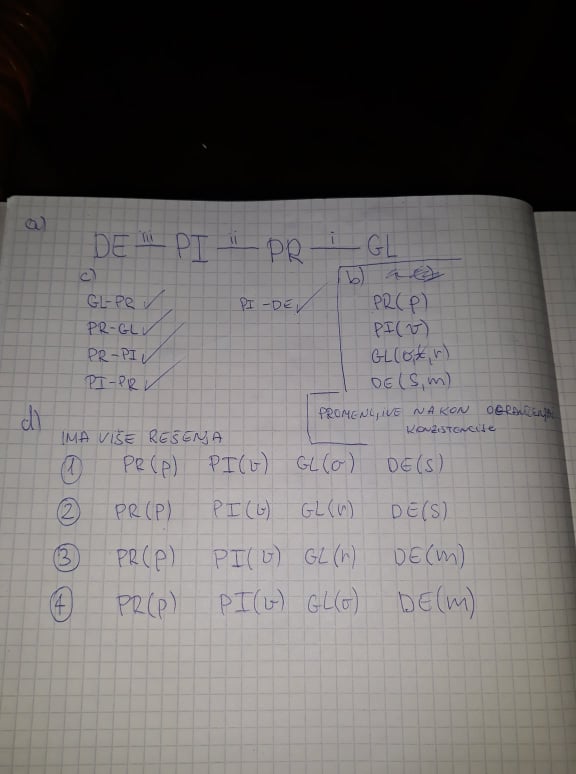 a)
DE iii PI ii PR i GL
c)
GL-PR ✓
PR-GL ✓
PR-PI ✓
PI-PR ✓
PI-DE ✓
b)
PR(p)
PI(v)
DE(S,m)
PROMENLJIVE NAKON
KONZISTENCIJE
d)
IMA VIŠE REŠENJA
1 PR(p) PI(v) GL(σ) DE(S)
2 PR(P) PI(v) GL(r) DE(S)
3 PR(p) PI(v) GL(r) DE(m)
4 PR(p) PI(v) GL(σ) DE(m)